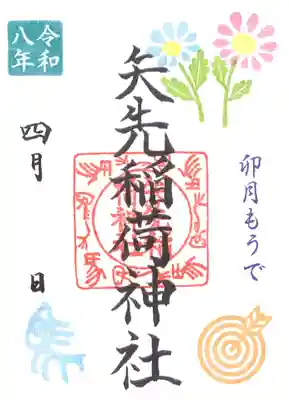 令和
八年
四月 日
矢先稲荷神社
卯月もうで